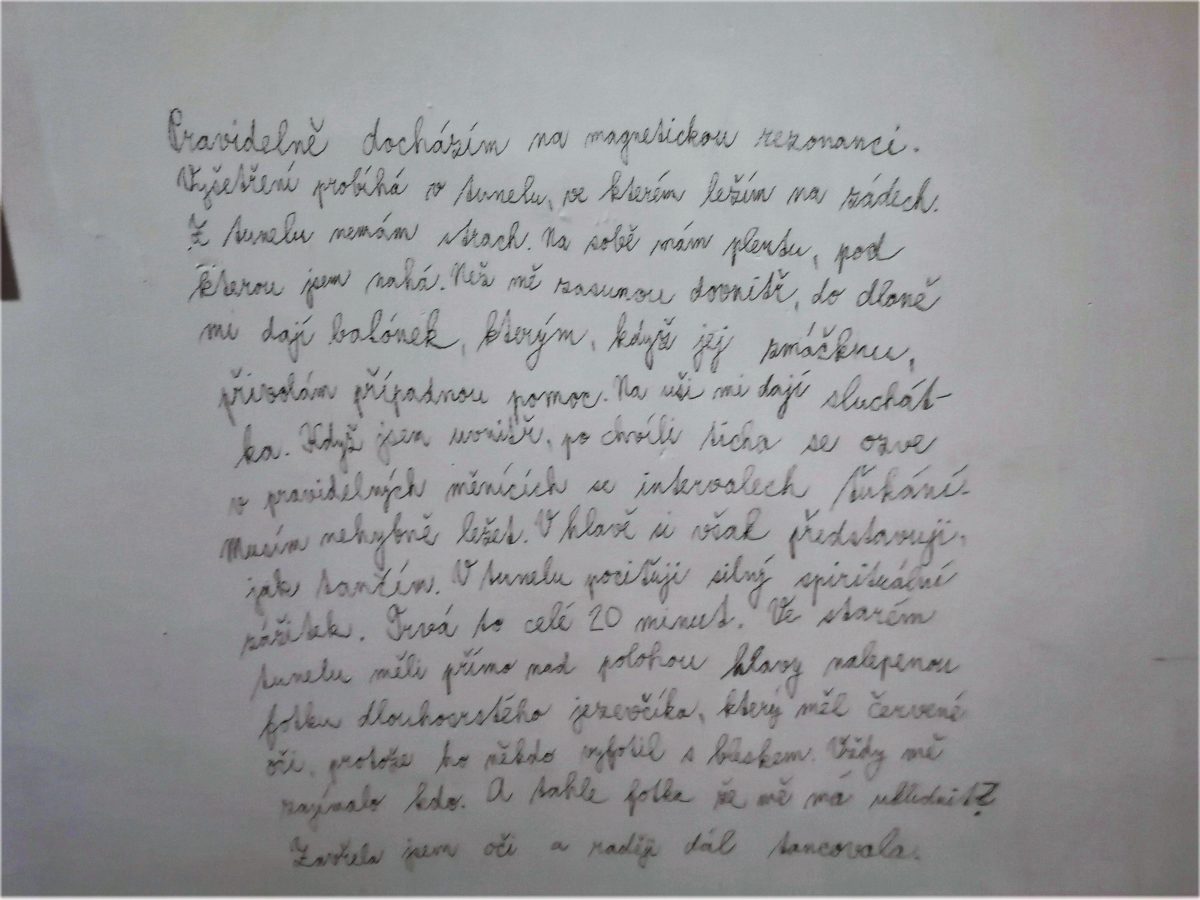 Pravidelně docházím na magnetickou rezonanci.
Vyšetření probíhá v tunelu, ve kterém ležím na zádech.
Z tunelu nemám strach. Na sobě mám plentu, pod
kterou jsem nahá. Než mě zasunou dovnitř, do dlaně
mi dají balónek, kterým, když jej zmáčknu,
přivolám případnou pomoc. Na uši mi dají sluchát-
ka. Když jsem uvnitř, po chvíli ticha se ozve
v pravidelných měnících se intervalech ťukání.
Musím nehybně ležet. V hlavě si však představuji,
jak tančím. V tunelu pociťuji silný spirituální
zážitek. Trvá to celé 20 minut. Ve starém
tunelu měli přímo nad polohou hlavy nalepenou
fotku dlouhosrstého jezevčíka, který měl červené
oči, protože ho někdo vyfotil s bleskem. Vždy mě
zajímalo kdo. A tahle fotka že mě má uklidnit?
Zavřela jsem oči a raději dál tancovala.